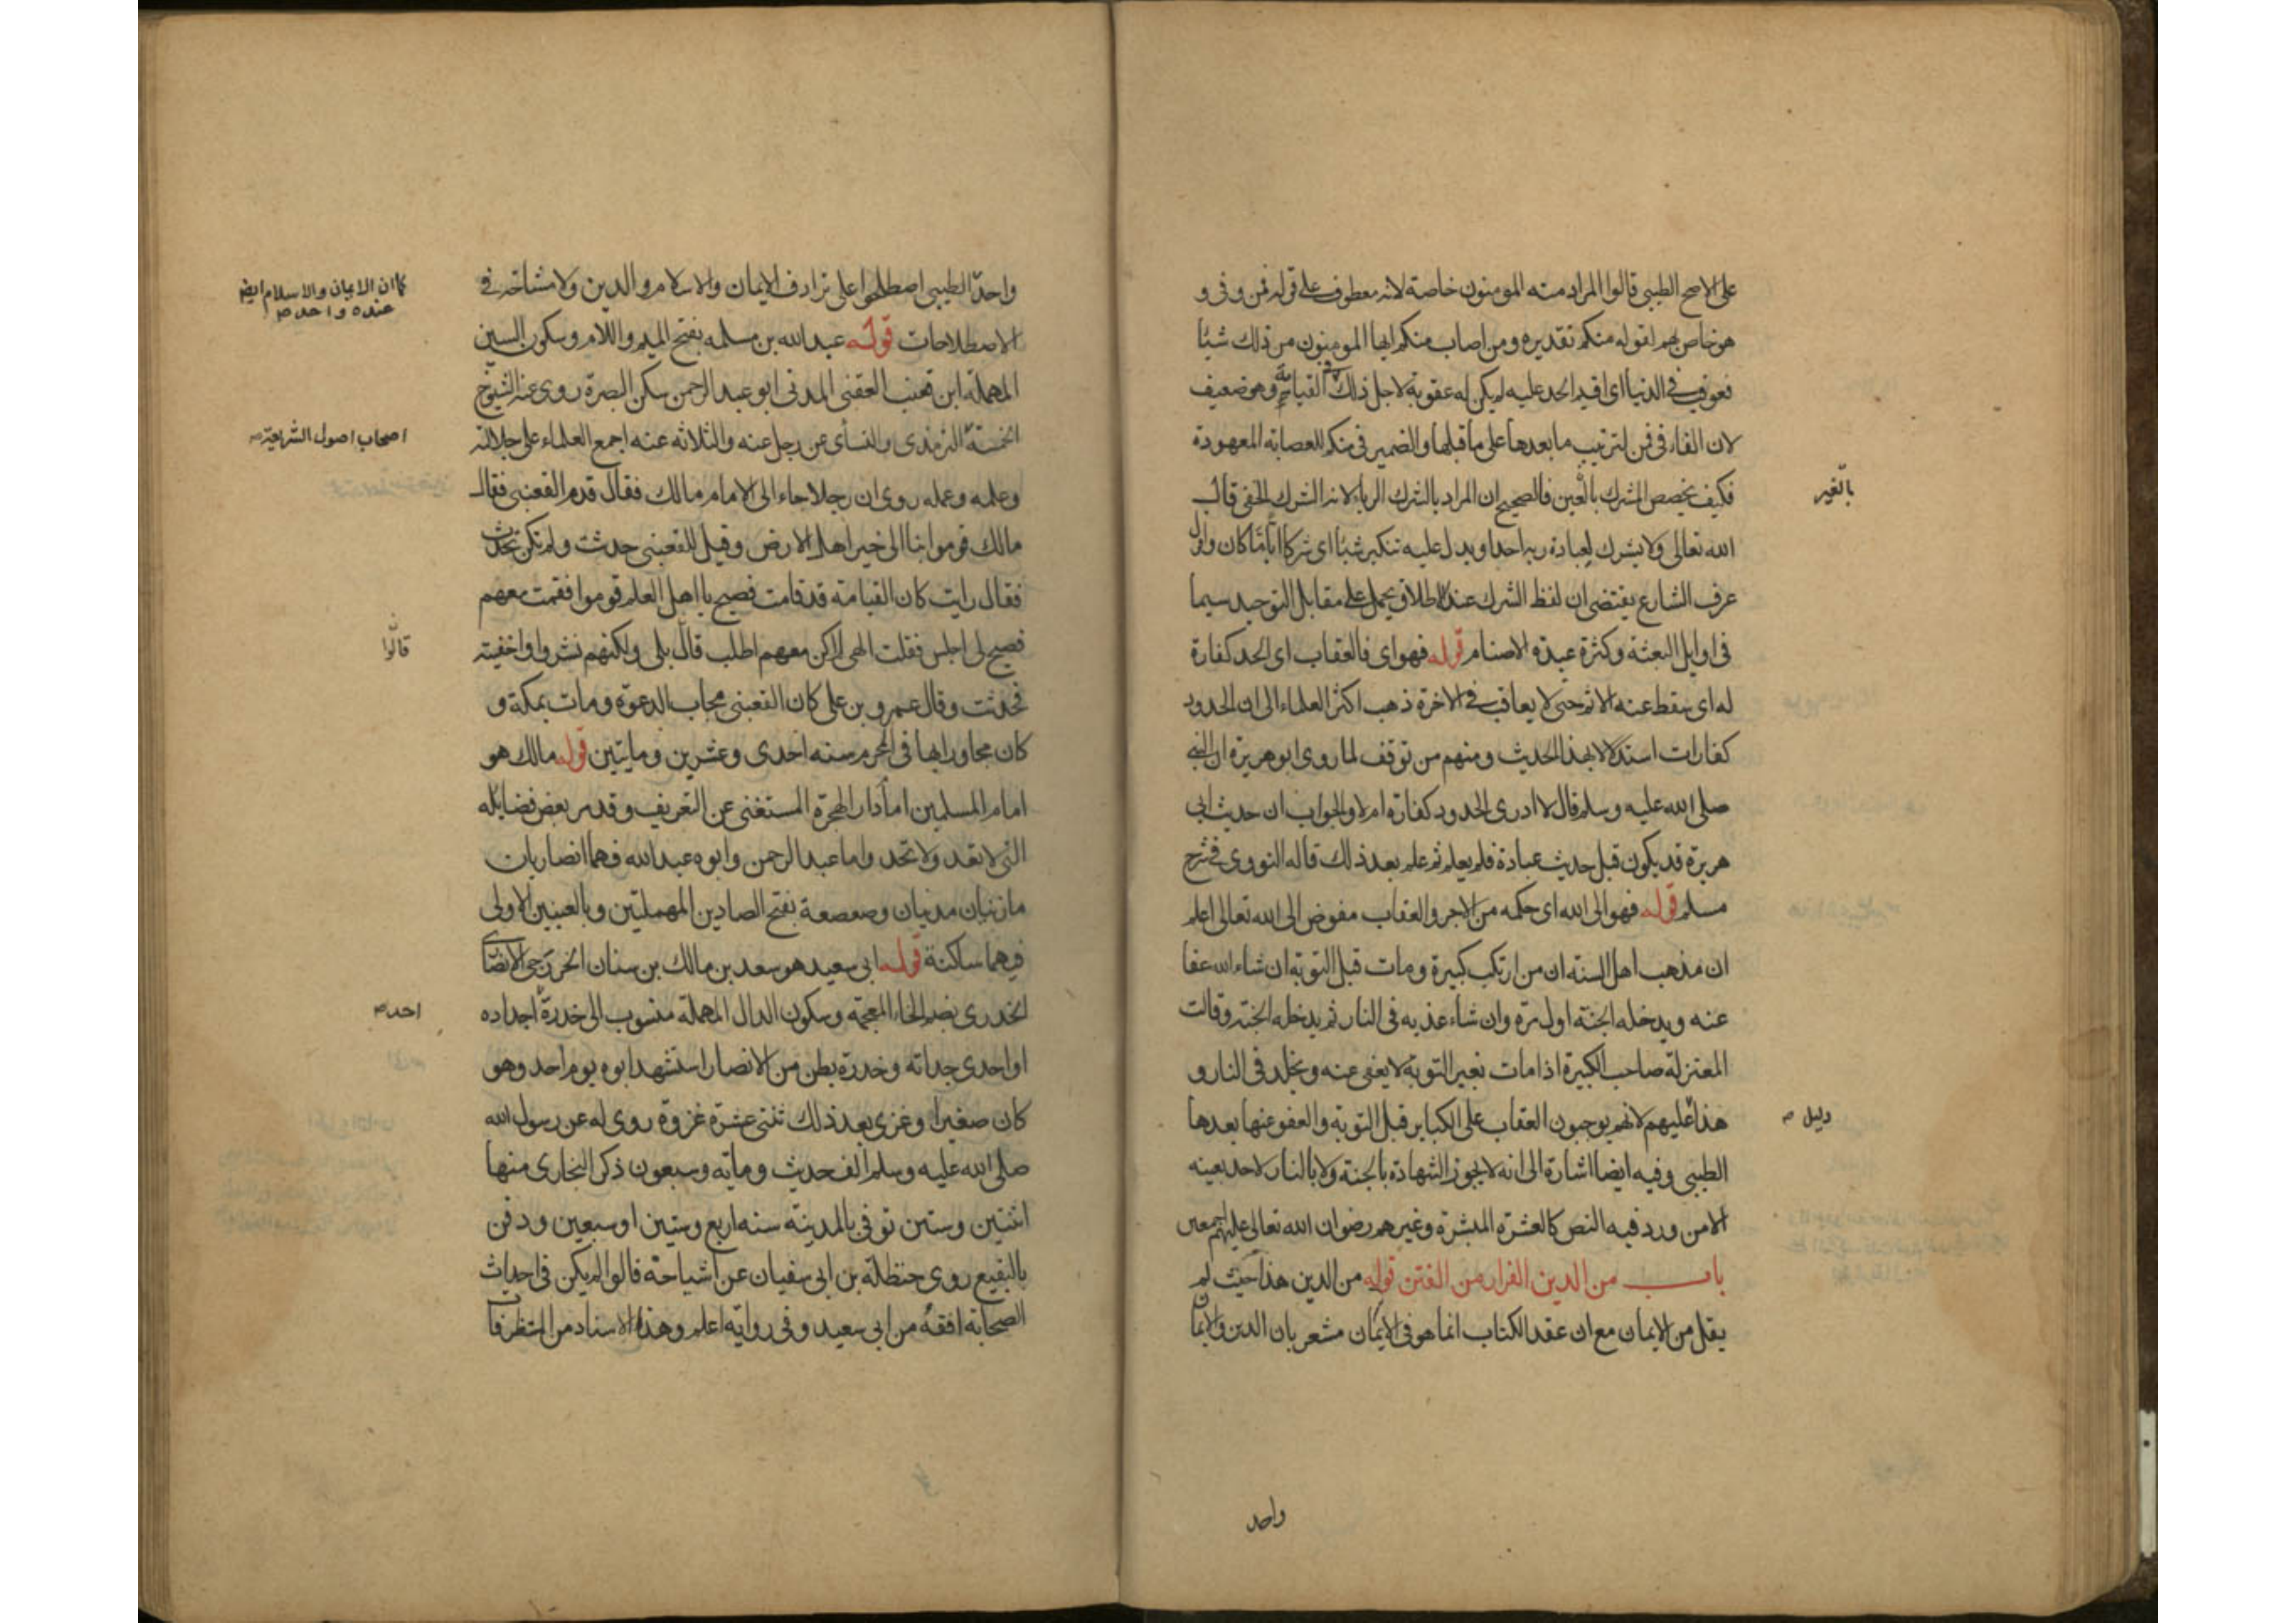 على الاصح الطيبي قالوا المراد منه المومنون خاصة لانه معطوف على قوله فمن وفى و
هو خاص بهم لقوله منكم تقديره ومن اصاب منكم ايها المومنون من ذلك شيئا
فعوقب في الدنيا اى اقيم الحد عليه لم يكن له عقوبة لاجل ذلك في القيامة وهو ضعيف
لان الفاء فى فمن لترتيب ما بعدها على ما قبلها والضمير فى منكم للعصابة المعهودة
فكيف يخصص الشرك بالغير فالصحيح ان المراد بالشرك الرياء لانه الشرك الخفى قال
بالغير
الله تعالى ولا يشرك لعبادة ربه احدا ويدل عليه تنكير شيئا اى شركا ايا ما كان واقول
عرف الشارع يقتضى ان لفظ الشرك عند الاطلاق يحمل على مقابل التوحيد سيما
فى اوايل البعثة وكثرة عبدة الاصنام قوله فهو اى فالعقاب اى الحد كفارة
له اى يسقط عنه الاثم حتى لا يعاقب في الاخرة ذهب اكثر العلماء الى ان الحدود
كفارات استدلالا بهذا الحديث ومنهم من توقف لما روى ابو هريرة ان النبي
صلى الله عليه وسلم قال لا ادرى الحدود كفارة ام لا والجواب ان حديث ابى
هريرة قد يكون قبل حديث عبادة فلم يعلم ثم علم بعد ذلك قاله النووى فى شرح
مسلم قوله فهو الى الله اى حكمه من الاجر والعقاب مفوض الى الله تعالى اعلم
ان مذهب اهل السنة ان من ارتكب كبيرة ومات قبل التوبة ان شاء الله عفا
عنه ويدخله الجنة اول مرة وان شاء عذبه فى النار ثم يدخله الجنة وقالت
المعتزلة صاحب الكبيرة اذا مات بغير التوبة لا يعفى عنه ويخلد فى النار و
هذا عليهم لانهم يوجبون العقاب على الكباير قبل التوبة والعفو عنها بعدها
دليل صح
الطيبى وفيه ايضا اشارة الى انه لا يجوز الشهادة بالجنة ولا بالنار لاحد بعينه
الا من ورد فيه النص كالعشرة المبشرة وغيرهم رضوان الله تعالى عليهم اجمعين
باب من الدين الفرار من الفتن قوله من الدين هذا حيث لم
يقل من الايمان مع ان عقد الكتاب انما هو فى الايمان مشعر بان الدين والايمان
واحد
واحد الطيبى اصطلحوا على ترادف الايمان والاسلام والدين ولا مشاحة في
كما ان الايمان والاسلام ايضا
عنده واحد صح
الاصطلاحات قوله عبد الله بن مسلمه بفتح الميم واللام وسكون السين
المهملة ابن قعنب القعنى المدنى ابو عبد الرحمن سكن البصرة روى عنه الشيوخ
الخمسة الترمذى والنسأى عن رجل عنه والثلاثة عنه اجمع العلماء على جلالته
اصحاب اصول الشريعة صح
وعلمه وعمله روى ان رجلا جاء الى الامام مالك فقال قدم القعنبى فقال
مالك قوموا بنا الى خير اهل الارض وقيل للقعنبى حدثت ولم تكن تحدث
فقال رايت كان القيامة قد قامت فصيح يا اهل العلم قوموا فقمت معهم
فصيح لى اجلس فقلت الهى الم اكن معهم اطلب قال بلى ولكنهم نشروا واخفيته
قالوا
فحدثت وقال عمرو بن على كان القعنبى مجاب الدعوة ومات بمكة و
كان مجاورا بها فى المحرم سنة احدى وعشرين ومايتين قوله مالك هو
امام المسلمين امام دار الهجرة المستغنى عن التعريف وقد مر بعض فضايله
التى لا تعد ولا تحد واما عبد الرحمن وابوه عبد الله فهما انصاريان
مازنيان مدنيان وصعصعة بفتح الصادين المهملتين وبالعينين الاولى
فيهما ساكنة قوله ابى سعيد هو سعد بن مالك بن سنان الخزرجى الانصارى
الخدرى بضم الخاء المعجمة وسكون الدال المهملة منسوب الى خدرة اجداده
احد صح
او احدى جداته وخدرة بطن من الانصار استشهد ابوه يوم احد وهو
كان صغيرا وغزى بعد ذلك ثنتى عشرة غزوة روى له عن رسول الله
صلى الله عليه وسلم الف حديث وماية وسبعون ذكر البخارى منها
اثنتين وستين توفى بالمدينة سنة اربع وستين او سبعين ودفن
بالبقيع روى حنظلة بن ابى سفيان عن اشياخه قالوا لم يكن فى احداث
الصحابة افقه من ابى سعيد وفى رواية اعلم وهذا الاسناد من المستظرفات